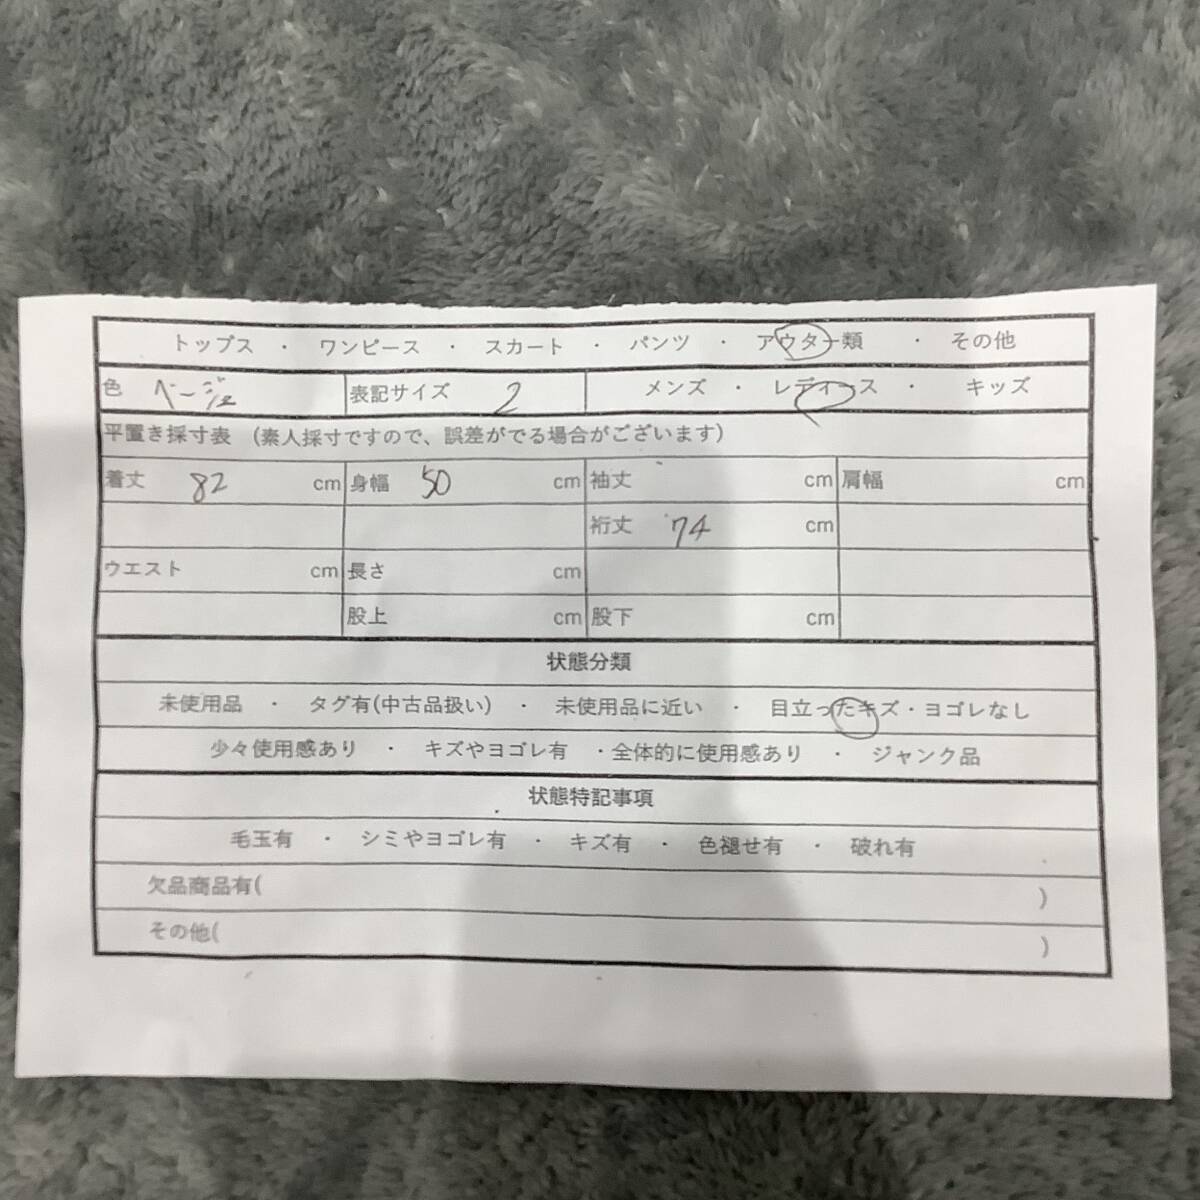 トップス ・ ワンピース ・ スカート ・ パンツ ・ アウター類 ・ その他
色 ベージュ 表記サイズ 2 メンズ ・ レディース ・ キッズ
平置き採寸表 (素人採寸ですので、誤差がでる場合がございます)
着丈 82 cm 身幅 50 cm 袖丈 cm 肩幅 cm
裄丈 74 cm
ウエスト cm 長さ cm
股上 cm 股下 cm
状態分類
未使用品 ・ タグ有(中古品扱い) ・ 未使用品に近い ・ 目立ったキズ・ヨゴレなし
少々使用感あり ・ キズやヨゴレ有 ・全体的に使用感あり ・ ジャンク品
状態特記事項
毛玉有 ・ シミやヨゴレ有 ・ キズ有 ・ 色褪せ有 ・ 破れ有
欠品商品有( )
その他( )